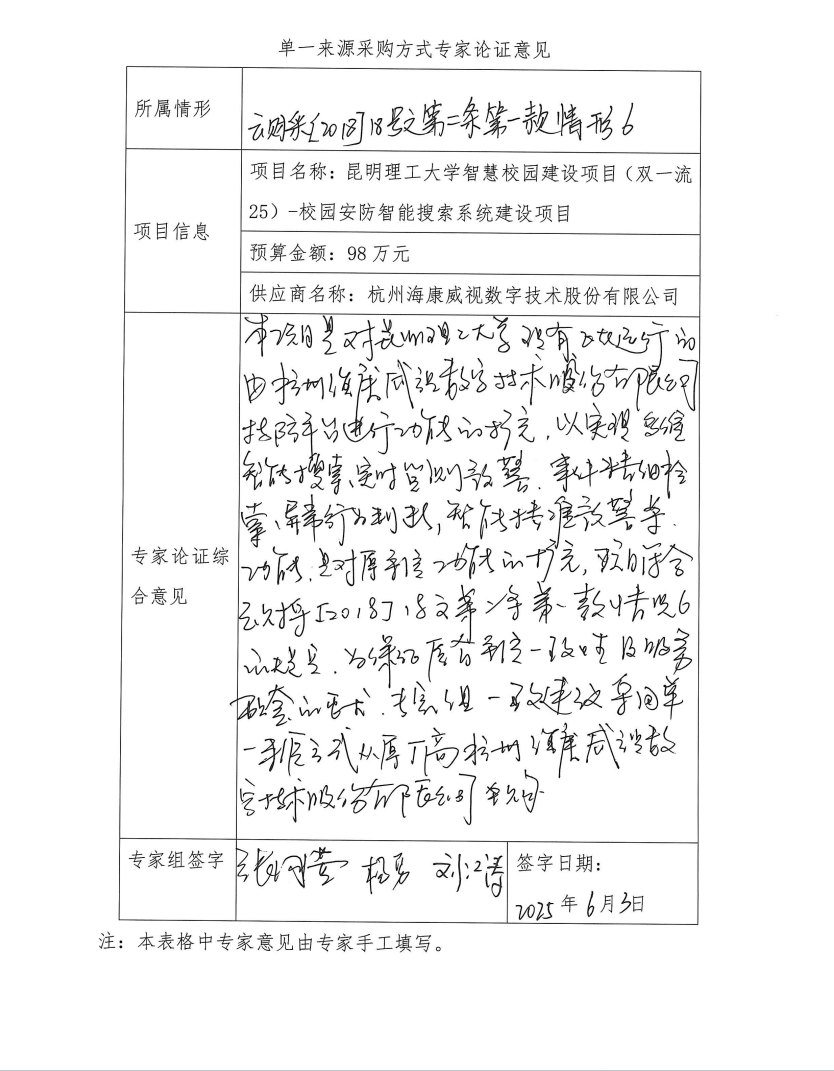 单一来源采购方式专家论证意见
所属情形
云财采[2018]18号文第二条第一款情形6
项目信息
项目名称：昆明理工大学智慧校园建设项目（双一流
25）-校园安防智能搜索系统建设项目
预算金额：98万元
供应商名称：杭州海康威视数字技术股份有限公司
专家论证综
合意见
本项目是对昆明理工大学现有正在运行的
由杭州海康威视数字技术股份有限公司
技防平台进行功能的扩充，以实现多维
智能搜索、实时监测预警、事件精细检
索、异常行为判断，智能精准预警等
功能，是对原系统功能的扩充，项目符合
云财采[2018]18文第二条第一款情况6
的规定，为保证原有系统一致性及服务
配套的要求，专家组一致建议采用单
一来源方式从原厂商杭州海康威视数
字技术股份有限公司采购
专家组签字
杨勇 刘江涛
签字日期：
2025年6月3日
注：本表格中专家意见由专家手工填写。